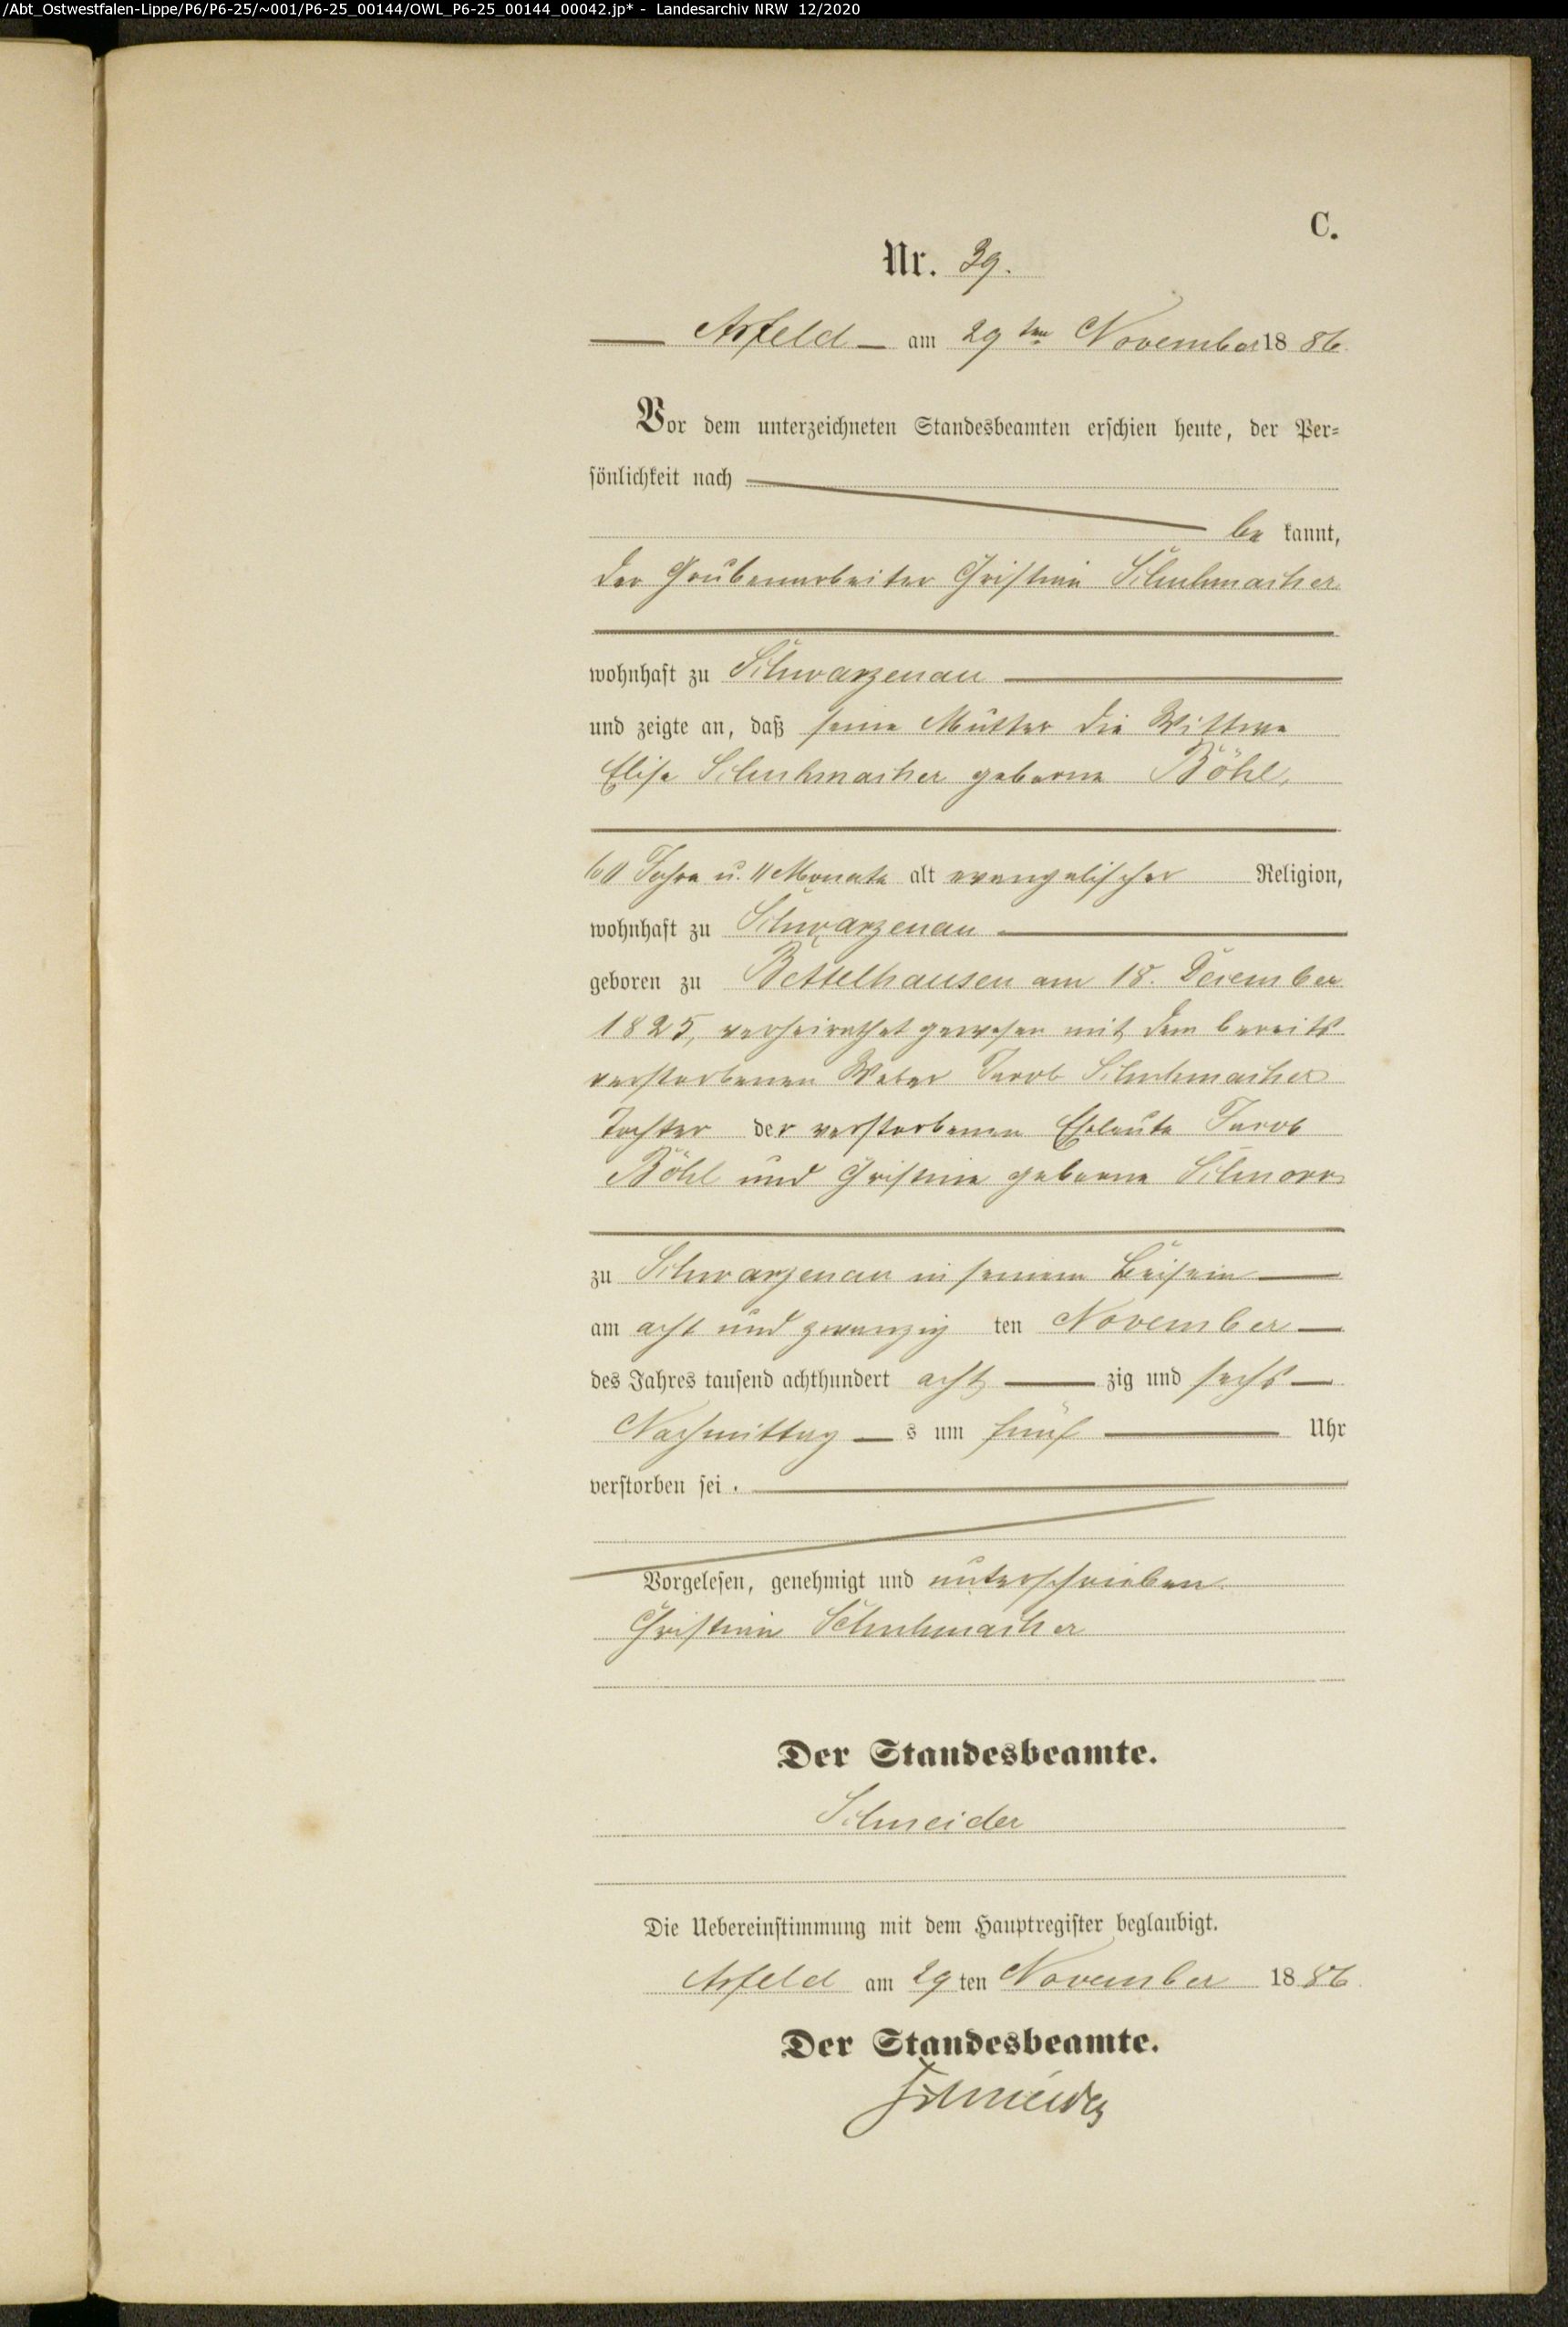 /Abt_Ostwestfalen-Lippe/P6/P6-25/~001/P6-25_00144/OWL_P6-25_00144_00042.jp* - Landesarchiv NRW 12/2020
C.
Nr. 39.
Arfeld am 29ten November 1886
Vor dem unterzeichneten Standesbeamten erschien heute, der Per-
sönlichkeit nach
be kannt,
der Grubenarbeiter Christian Schuhmacher
wohnhaft zu Schwarzenau
und zeigte an, daß seine Mutter die Wittwe
Elise Schuhmacher geborne Böhl,
60 Jahre u. 11 Monate alt evangelischer Religion,
wohnhaft zu Schwarzenau
geboren zu Bettelhausen am 18. December
1825, verheirathet gewesen mit dem bereits
verstorbenen Weber Jacob Schuhmacher
Tochter der verstorbenen Eheleute Jacob
Böhl und Christine geborne
zu Schwarzenau in seinem Beisein
am acht und zwanzig ten November
des Jahres tausend achthundert acht zig und sechs
Nachmittag s um fünf Uhr
verstorben sei.
Vorgelesen, genehmigt und unterschrieben
Christian Schuhmacher
Der Standesbeamte.
Schneider
Die Uebereinstimmung mit dem Hauptregister beglaubigt.
Arfeld am 29 ten November 1886
Der Standesbeamte.
Schneider